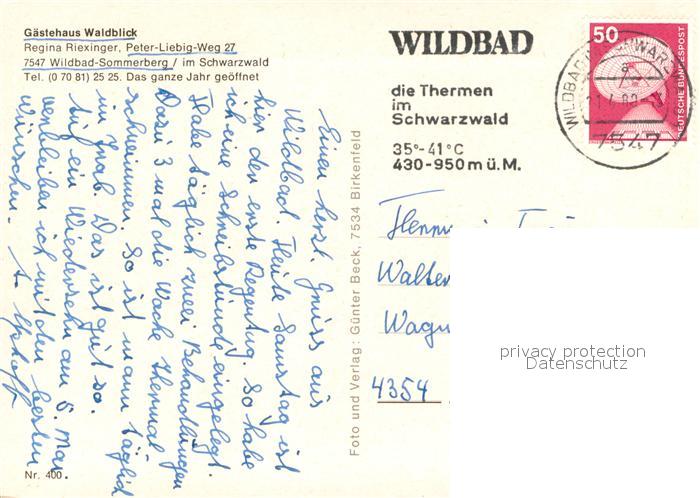 Gästehaus Waldblick
Regina Riexinger, Peter-Liebig-Weg 27
7547 Wildbad-Sommerberg / im Schwarzwald
Tel. (0 70 81) 25 25. Das ganze Jahr geöffnet
Einen herzl. Gruss aus
Wildbad. Heute Samstag ist
hier der erste Regentag. So habe
ich eine Schreibstunde eingelegt.
Habe täglich zwei Behandlungen
Dazu 3 mal die Woche Thermal
schwimmen. So ist mann täglich
im Trab. Das ist gut so.
für ein Wiedersehn am 5. Mai
verbleiben ich mit den besten
Wünschen.
Nr. 400.
Foto und Verlag: Günter Beck, 7534 Birkenfeld
WILDBAD
die Thermen
im
Schwarzwald
35°-41°C
430-950 m ü. M.
50
DEUTSCHE BUNDESPOST
WILDBAD
7547
Walter
4354
privacy protection
Datenschutz